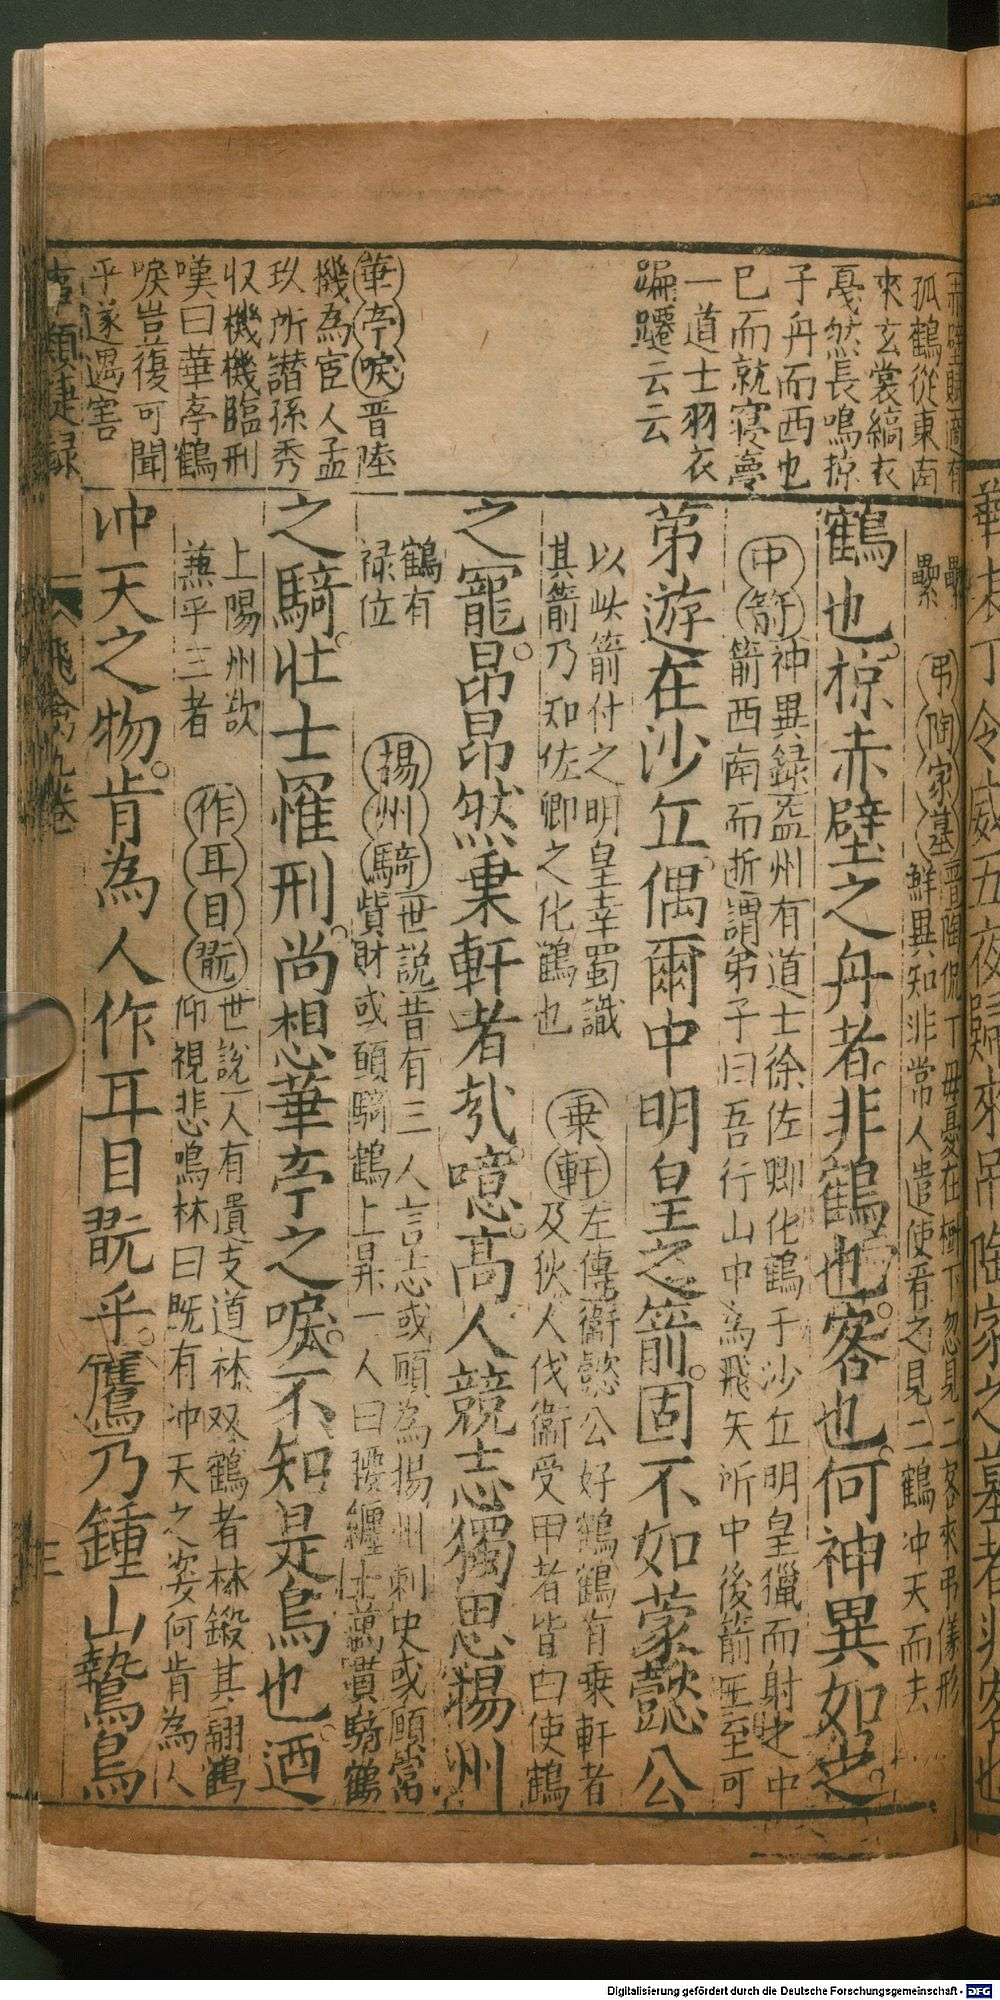 赤壁賦適有
孤鶴從東南
來玄裳縞衣
戞然長鳴掠
予舟而西也
巳而就寢夢
一道士羽衣
蹁躚云云
華亭唳晋陸
機為宦人孟
玖所譖孫秀
収機機臨刑
嘆曰華亭鶴
唳豈復可聞
乎遂遇害
弔陶家墓晋陶侃丁母憂在
下忽見二客來弔儀形
鮮異知非常人遣使看之見二鶴冲天而去
鶴也掠赤壁之舟者非鶴也客也何神異如之
中箭神異録益州有道士徐佐卿化鶴于沙丘明皇獵而射之中
箭西南而逝謂弟子曰吾行山中為飛矢所中後箭
至可
第遊在沙丘偶爾中明皇之箭固不如蒙懿公
以此箭付之明皇幸蜀識
其箭乃知佐卿之化鶴也
乗軒左傳衞懿公好鶴鶴有乗軒者
及狄人伐衞受甲者皆曰使鶴
之寵昂昂然乗軒者㢤噫高人競志獨思楊州
鶴有
禄位
揚州騎世説昔有三人言志或願為揚州刺史或願當
貲財或願騎鶴上昇一人曰
纏十萬貫騎鶴
之騎壮士罹刑尚想華亭之唳不知是鳥也迺
上陽州欲
兼乎三者
作耳目翫世説人有遺支道林双鶴者林鍛其翮鶴
仰視悲鳴林曰既有冲天之姿何肯為人
冲天之物肯為人作耳目翫乎鷹乃鍾山鷙鳥
事類捷録
飛禽九卷
三
華表丁令威五夜歸來吊陶家之墓者
Digitalisierung gefördert durch die Deutsche Forschungsgemeinschaft - DFG